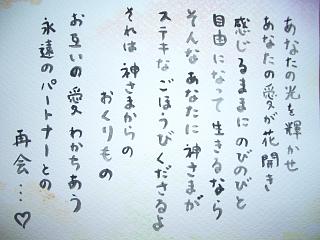 あなたの光を輝かせ
あなたの愛が花開き
感じるままにのびのびと
自由になって生きるなら
そんなあなたに神さまが
ステキなごほうびくださるよ
それは神さまからの
おくりもの
お互いの愛わかちあう
永遠のパートナーとの
再会…♡